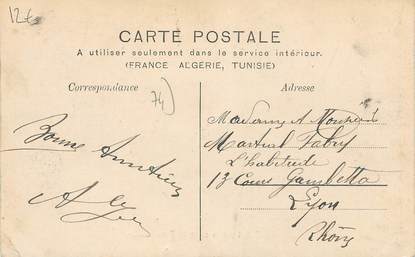 12€
CARTE POSTALE
A utiliser seulement dans le service intérieur.
(FRANCE ALGÉRIE, TUNISIE)
Correspondance
Adresse
74)
Madame et Monsieur
Martial Fabry
Bonne Amitiés
13 Cours Gambetta
Lyon
Rhône